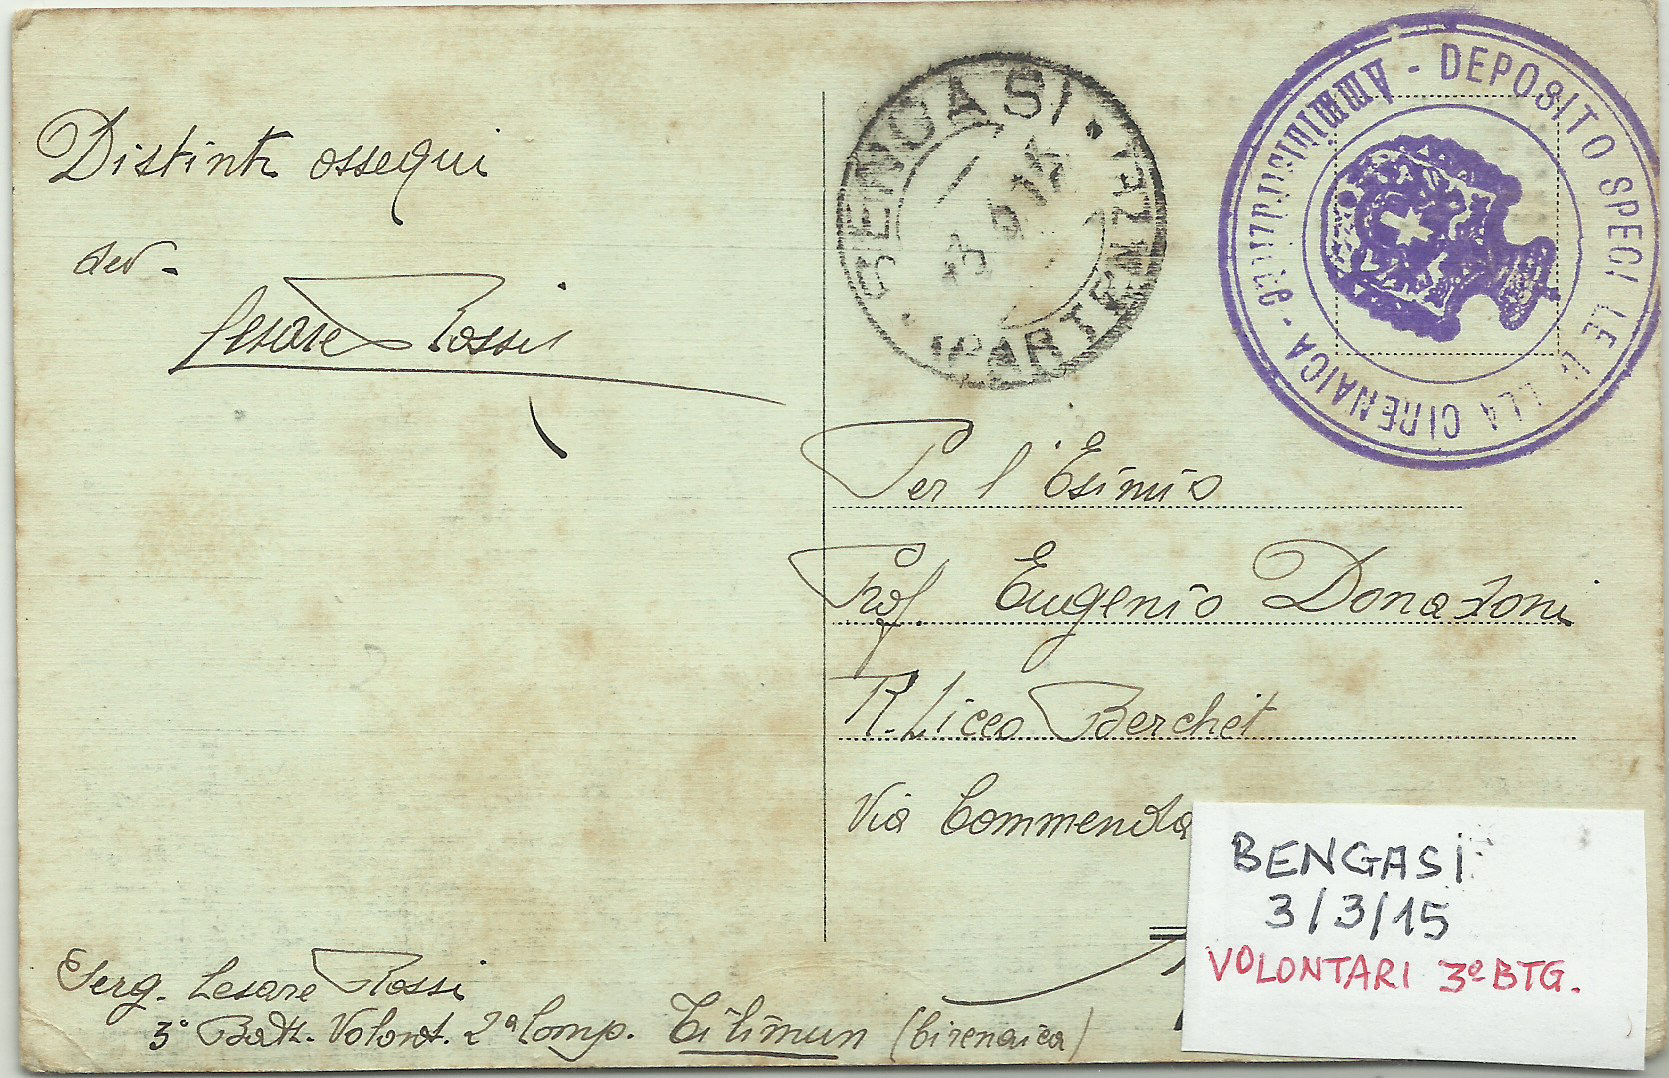 Distinti ossequi
dev.
Cesare Rossi
BENGASI
PARTENZA
DEPOSITO SPECIALE DELLA CIRENAICA - Amministrazione
Per l'Esimio
Prof. Eugenio Donadoni
R. Liceo Berchet
Via Commenda
Serg. Cesare Rossi
3° Batt. Volont. 2ª Comp. Tilimun (Cirenaica)
BENGASI
3/3/15
VOLONTARI 3º BTG.